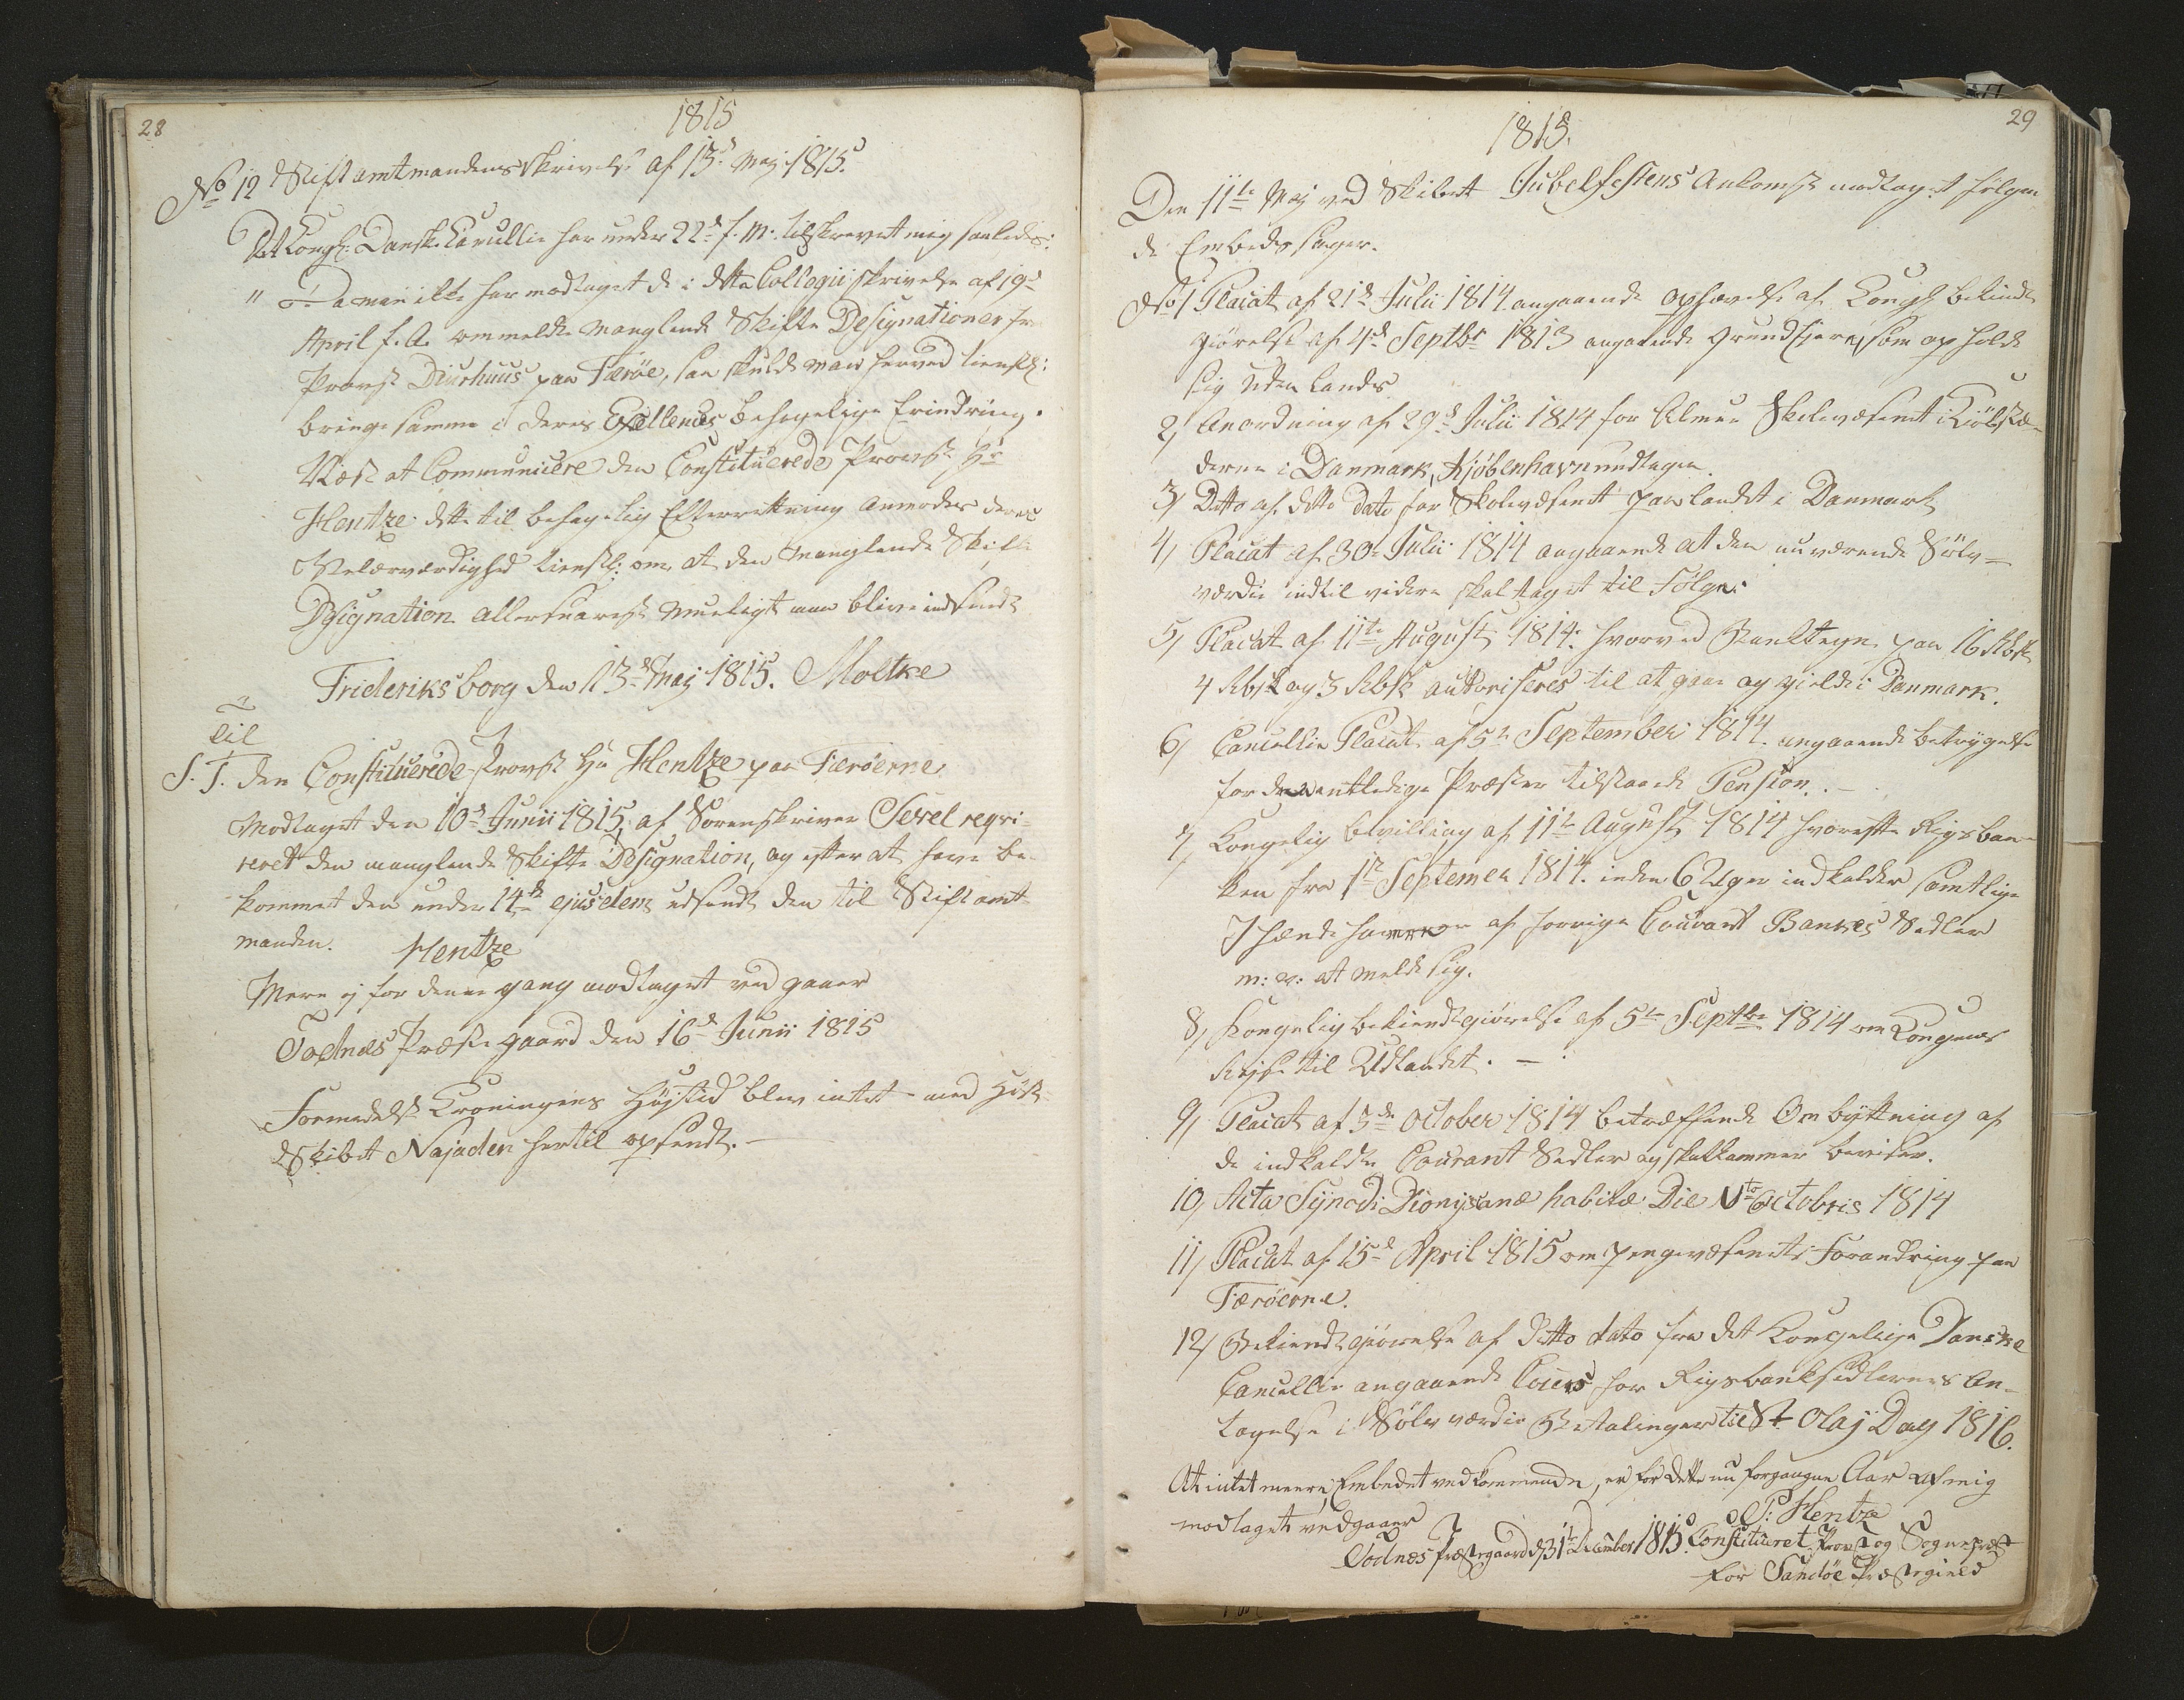 28
1815
No 12 Stiftamtmandens Skrivelse af 13d Maj 1815.
Det Kongl: Danske Cancellie har under 22d f. M. tilskrevet mig saaledes:
" Da man ikke har modtaget de i dette Collegii skrivelse af 19d
April f. A. ommeldte manglende Skifte Designationer fra
Provst Diurhuus paa Færöe, saa skulde man herved tienstl:
bringe samme i Deres Exellences behagelige Erindring.
Næst at Communicere den Constituerede Provst Hr
Hentze dette til behagelig Efterretning anmodes Deres
Velærværdighed tienstl: om, at den manglende Skifte
Designation allersnarest mueligt maa blive indsendt
Frideriksborg den 13d Maj 1815. Moltke
Til
S. T. den Constituerede Provst Hr Hentze paa Færöerne
Modtaget den 10d Junii 1815, af Sorenskriver Tevel reqvi-
reret den manglende Skifte Designation, og efter at have be-
kommet den under 14d ejusdem udsendt den til Stiftamt-
manden. Hentze
Mere ej for denne gang modtaget ved gaaer
Todnæs Præstegaard den 16d Junii 1815
Formedelst Kroningens Höjtid blev intet med
Skibet Najaden hertil opsendt. —
29
1815.
Den 11te Maj ved Skibet Jubelfestens Ankomst modtaget følgen-
de Embeds sager.
No 1 Placat af 21d Julii 1814 angaaende ophævelse af Kongl bekiendt-
giörelse af 4d Septbr 1813 angaaende Grundejere, som opholde
sig uden Lands
2, Anordning af 29d Julii 1814 for Almue Skolevæsenet i Kiöbstæ-
derne i Danmark, Kjöbenhavn undtagen.
3, Ditto af ditto dato for Skolevæsenet paa landet i Danmark
4, Placat af 30te Julii 1814 angaaende at den nuværende Sölv-
værdie indtil videre skal tages til Fölge.
5, Placat af 11te August 1814. hvorved Tegn paa 16 Rbsk
4 Rbsk og 3 Rbsk autoriseres til at gaae og gielde i Danmark.
6, Cancellie Placat af 5te September 1814. angaaende betrygelse
for de entledige Præster tilstaaede Pension. . —
7, Kongelig bevilling af 11te August 1814 hvorefter Rigsban-
ken fra 1te Septemer 1814. inden 6 Uger indkalder samtlige
Ihændehavere af forrige Courant Bankes Sedler
m: v: at melde sig.
8, Kongelig bekiendtgiörelse af 5te Septbr 1814 om Kongens
Rejse til Udlandet. —
9, Placat af 3de October 1814 betræffende Ombyttning af
de indkaldte Courant Sedler og skatkammer beviser.
10, Acta Synodi Dionysianæ habitæ Die Vto Octobris 1814
11, Placat af 15d April 1815 om pengevæsenets Forandring paa
Færöerne.
12, Bekiendtgiörelse af Ditto dato fra det Kongelige Danske
Cancellie angaaende Cours for Rigsbanksedlernes An-
tagelse i Sölv værdie Betalinger til St Olaj Dag 1816.
At intet meere, Embedet vedkommende, er for dette nu forgangne Aar af mig
modtaget vedgaaer P: Hentze
Todnæs Præstegaard d 31te December 1815. Constitueret Provst og Sognepræst
for Sandöe Præstegield